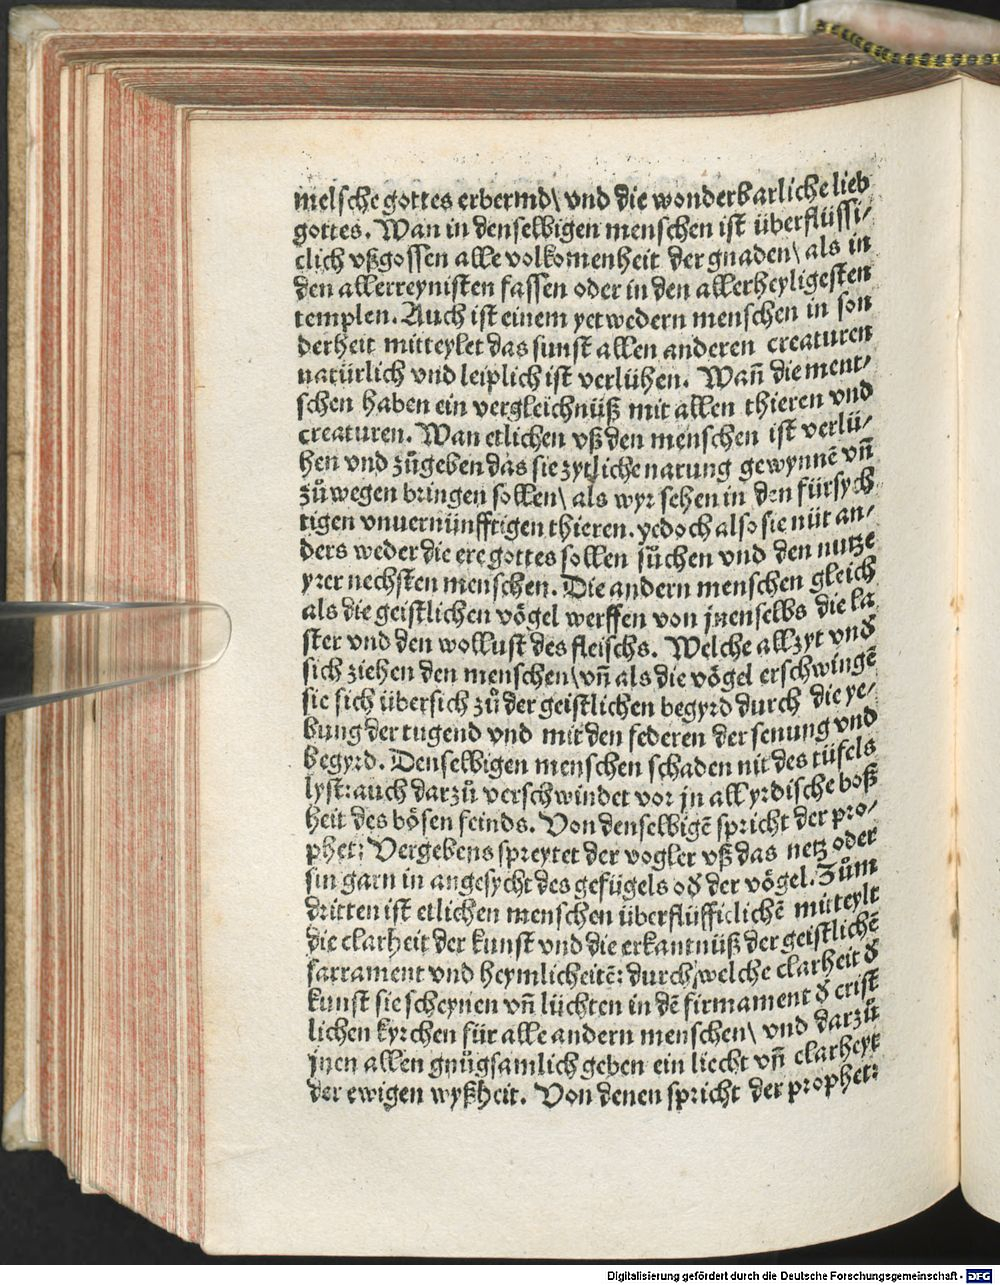 melsche gottes erbermd\ vnd die wonderbarliche lieb
gottes. Wan in denselbigen menschen ist überflüssi/
clich vßgossen alle volkomenheit der gnaden\ als in
den allerreynisten fassen oder in den allerheyligesten
templen. Auch ist einem yetwedern menschen in son
derheit mitteylet das sunst allen anderen creaturen
natürlich vnd leiplich ist verlühen. Wañ die ment/
schen haben ein vergleichnüß mit allen thieren vnd
creaturen. Wan etlichen vß den menschen ist verlü/
hen vnd zůgeben das sie zytliche narung gewynnẽ vñ
zůwegen bringen sollen\ als wyr sehen in den fürsych
tigen vnuernünfftigen thieren. yedoch also sie nüt an/
ders weder die ere gottes sollen sůchen vnd den nutze
yrer nechsten menschen. Die andern menschen gleich
als die geistlichen vögel werffen von jnen selbs die la
ster vnd den wollust des fleischs. Welche allzyt vnd̕
sich ziehen den menschen\ vñ als die vögel erschwingẽ
sie sich übersich zů der geistlichen begyrd durch die ye/
bung der tugend vnd mit den federen der senung vnd
begyrd. Denselbigen menschen schaden nit des tüfels
lyst: auch darzů verschwindet vor jn all yrdische boß
heit des bösen feinds. Von denselbigẽ spricht der pro/
phet: Vergebens spreytet der vogler vß das netz oder
sin garn in angesycht des gefügels od̕ der vögel. Zům
dritten ist etlichen menschen überflüssiclichẽ mitteylt
die clarheit der kunst vnd die erkantnüß der geistlichẽ
sacrament vnd heymlicheitẽ: durch welche clarheit d̕
kunst sie scheynen vñ lüchten in dẽ firmament d̕ crist
lichen kyrchen für alle andern menschen\ vnd darzů
jnen allen gnůgsamlich geben ein liecht vñ clarheyt
der ewigen wyßheit. Von denen spricht der prophet:
Digitalisierung gefördert durch die Deutsche Forschungsgemeinschaft - DFG